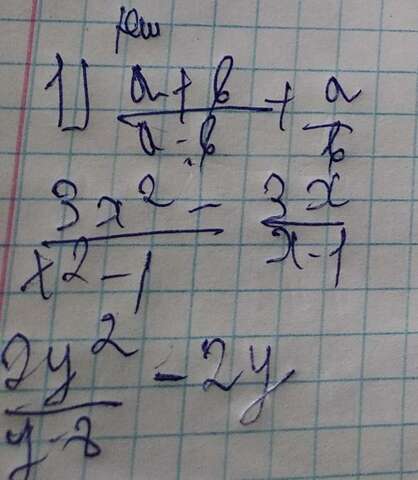 реш
1) a + b / a - b + a / b
3x² / x² - 1 - 3x / x - 1
2y² / y - z - 2y